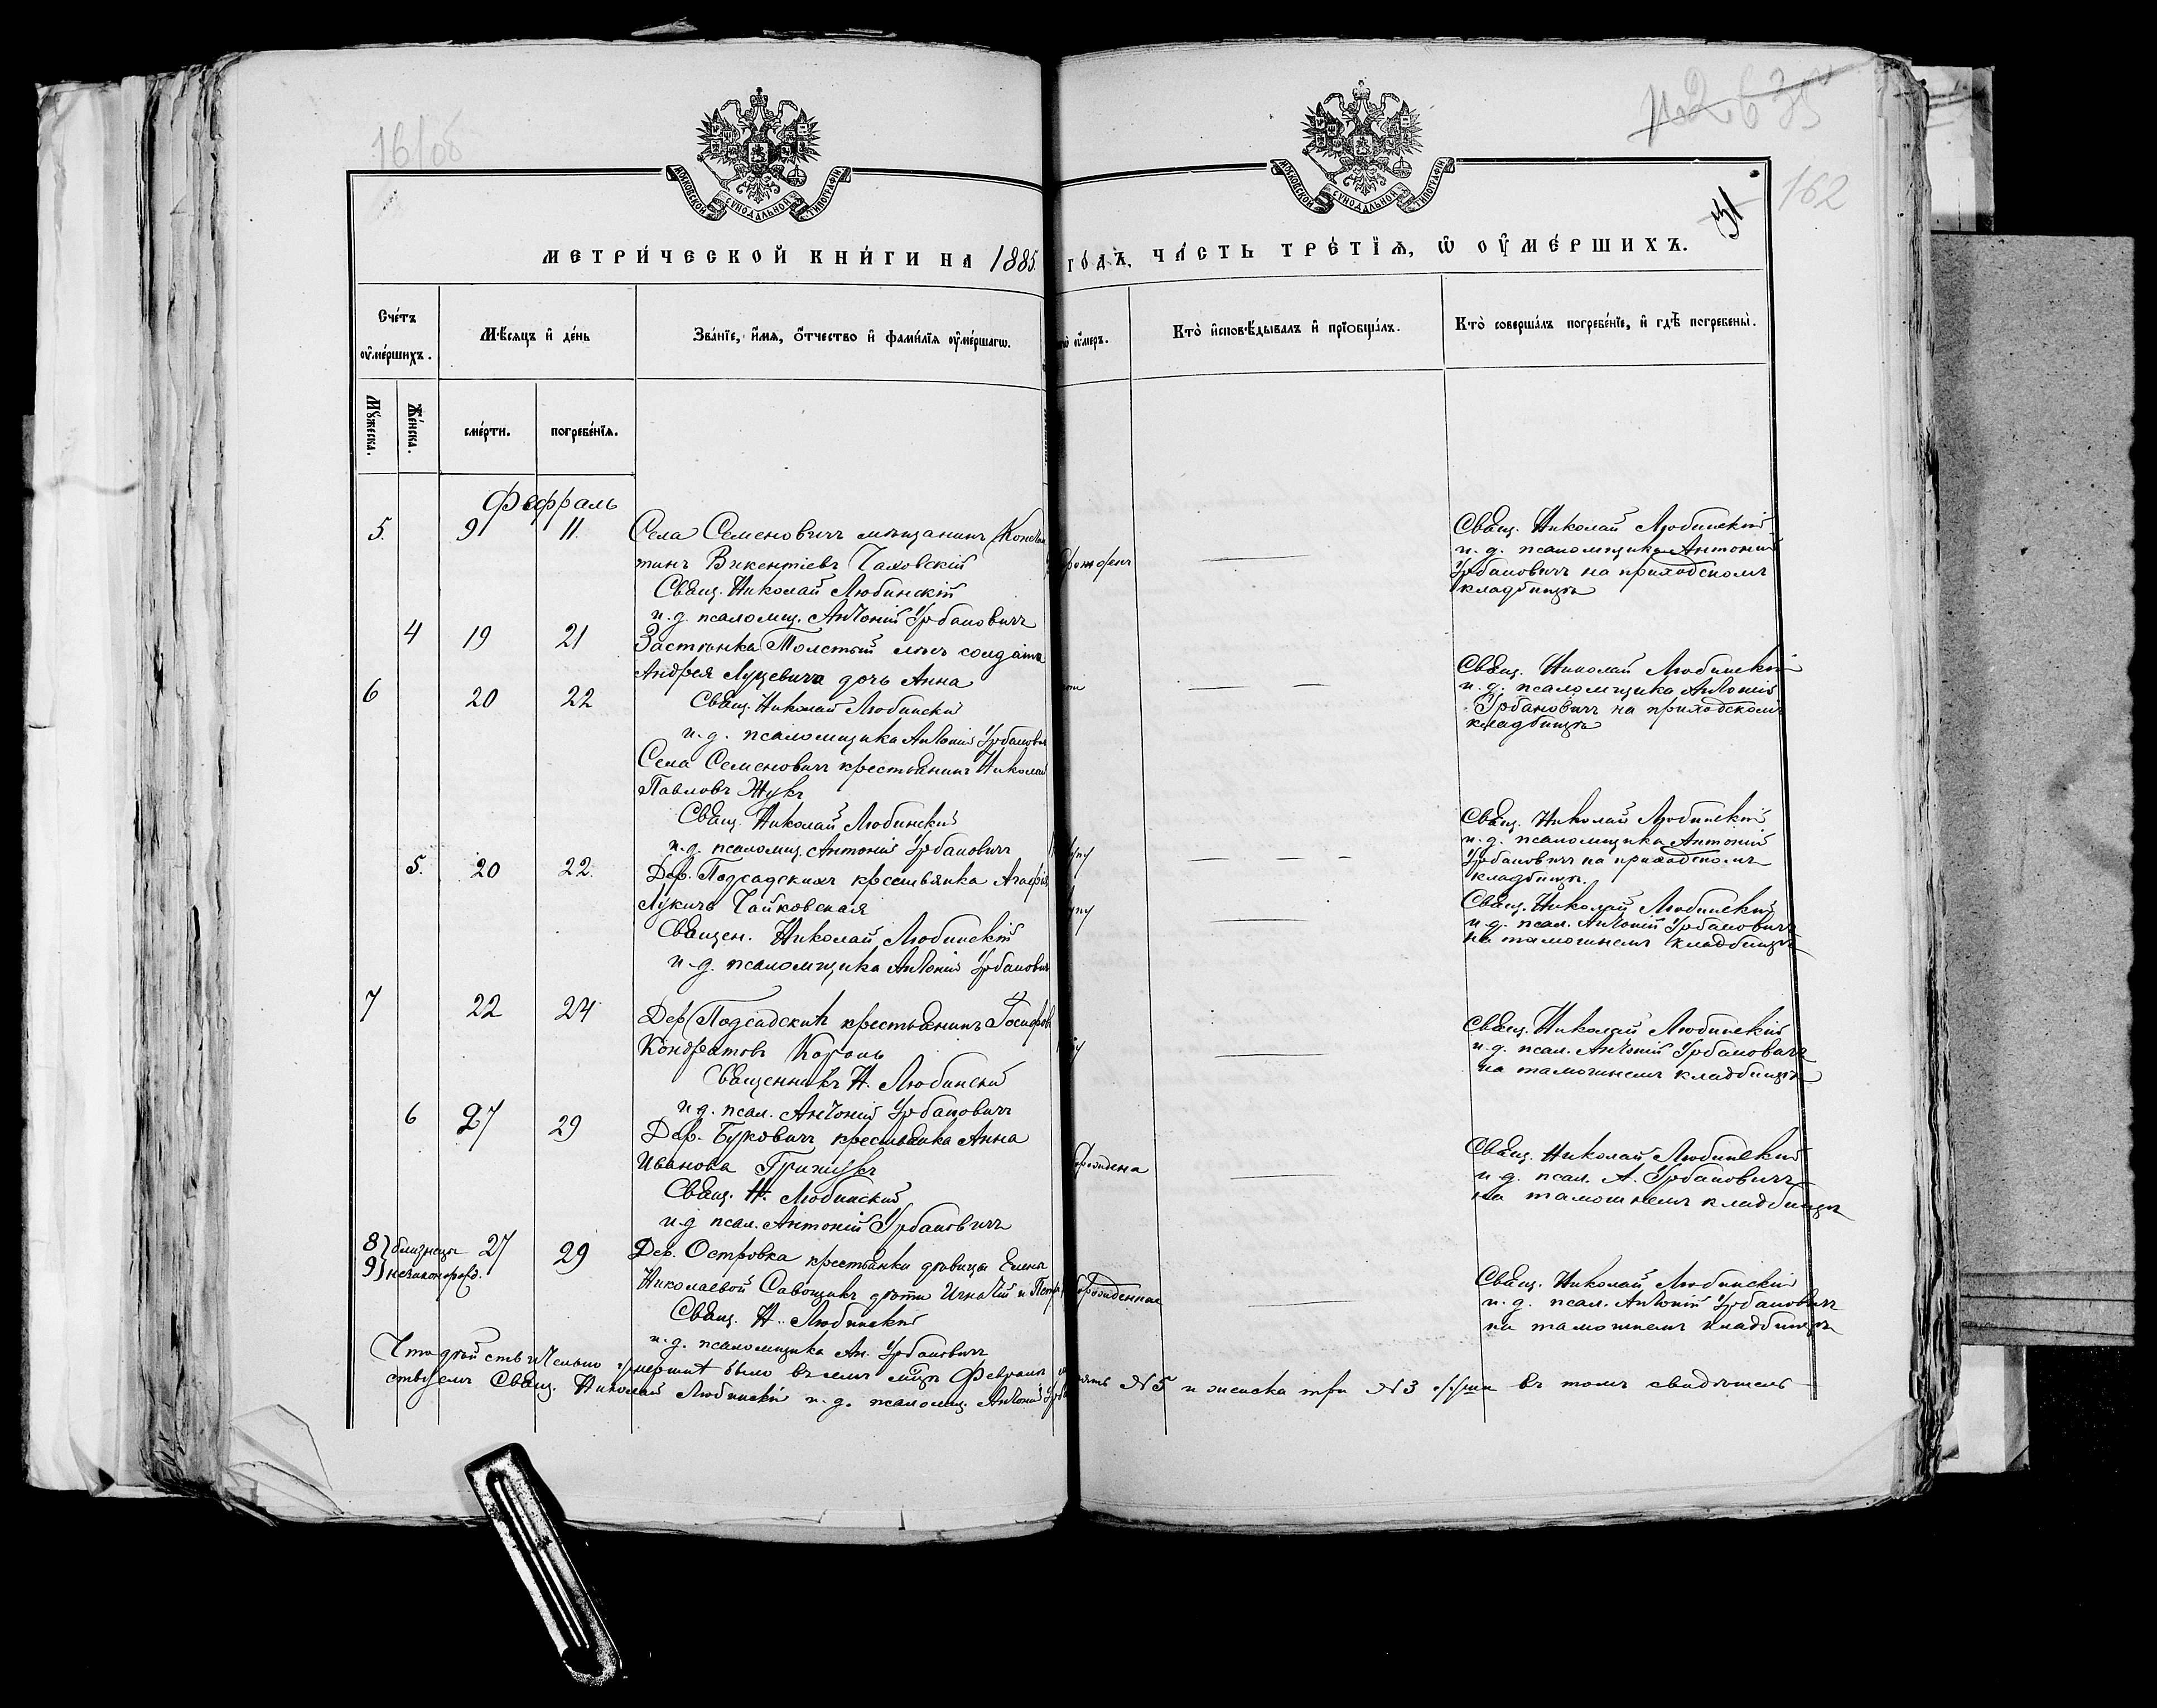 161об
162
31
МОСКОВСКОЙ СѴНОДАЛЬНОЙ ТИПОГРАФІИ
МОСКОВСКОЙ СѴНОДАЛЬНОЙ ТИПОГРАФІИ
МЕТРИ́ЧЕСКОЙ КНИ́ГИ НА 1885 ГО́ДЪ, ЧА́СТЬ ТРЕ́ТЇѦ, Ѡ ОУ҆МЕ́РШИХЪ.
Сче́тъ оу҆ме́ршихъ.
Мꙋ́жеска.
Же́нска.
Мѣ́сяцъ и҆ де́нь
сме́рти.
погребе́нїѧ.
Зва́нїе, и҆́мѧ, ѻ҆́тчество и҆ фами́лїѧ оу҆ме́ршагѡ.
оу҆́меръ.
Кто̀ и҆сповѣ́дывалъ и҆ прїобща́лъ.
Кто̀ соверша́лъ погребе́нїе, и҆ гдѣ̀ погребены̀.
Февраль
5. 9 11. Села Семеновичъ мѣщанинъ Констан
тинъ Викентіевъ Чаховскій
Свящ. Николай Любинскій
и. д. псаломщ. Антоній Урбановичъ
Свящ. Николай Любинскій
и. д. псаломщика Антоній
Урбановичъ на приходскомъ
кладбищѣ
4 19 21 Застѣнка Толстый лѣсъ солдата
Андрея Луцевича дочь Анна
Свящ. Николай Любинскій
и. д. псаломщика Антоній Урбанович
Свящ. Николай Любинскій
и. д. псаломщика Антоній
Урбановичъ на приходскомъ
кладбищѣ
6 20 22
Села Семеновичъ крестьянинъ Николай
Павловъ Жукъ
Свящ. Николай Любинскій
и. д. псаломщ. Антоній Урбановичъ
Свящ. Николай Любинскій
и. д. псаломщика Антоній
Урбановичъ на приходскомъ
кладбищѣ.
5. 20 22. Дер. Подсадскихъ крестьянка Агафія
Лукичъ Чайковская
Священ. Николай Любинскій
и. д. псаломщика Антоній Урбанович
Свящ. Николай Любинскій
и. д. псал. Антоній Урбановичъ
на тамошнемъ кладбищѣ
7 22 24 Дер. Подсадскихъ крестьянинъ
Кондратовъ Король
Священникъ Н. Любинскій
и д. псал. Антоній Урбановичъ
Свящ. Николай Любинскій
и. д. псал. Антоній Урбановичъ
на тамошнемъ кладбищѣ
6 27 29 Дер. Буковичъ крестьянка Анна
Иванова Грицукъ
Свящ. Н. Любинскій
и. д псал. Антоній Урбановичъ
Свящ. Николай Любинскій
и. д. псал. А. Урбановичъ
на тамошнемъ кладбищѣ
8 } близнецы 27 29 Дер. Островка крестьянки дѣвицы Елены
9 } незаконорожд. Николаевой Савощикъ дѣти Игнатій и Петръ
Свящ. Н. Любинскій
и. д. псаломщика Ан. Урбановичъ
Свящ. Николай Любинскій
и. д. псал. Антоній Урбановичъ
на тамошнемъ кладбищѣ
Что дѣйствительно умершихъ было въ семъ мцѣ Февралѣ № 5 и женска три № 3 въ томъ свидѣтель
ствуемъ Свящ. Николай Любинскій и. д. псаломщ. Антоній